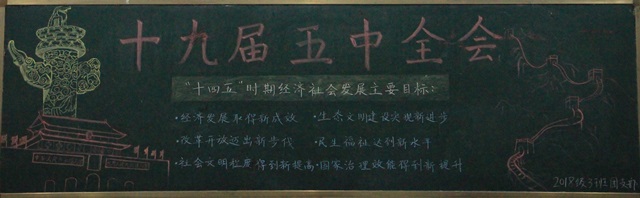 十九届五中全会
"十四五"时期经济社会发展主要目标:
·经济发展取得新成效
·生态文明建设实现新进步
·改革开放迈出新步伐
·民生福祉达到新水平
·社会文明程度得到新提高
·国家治理效能得到新提升
2018级3班团支部